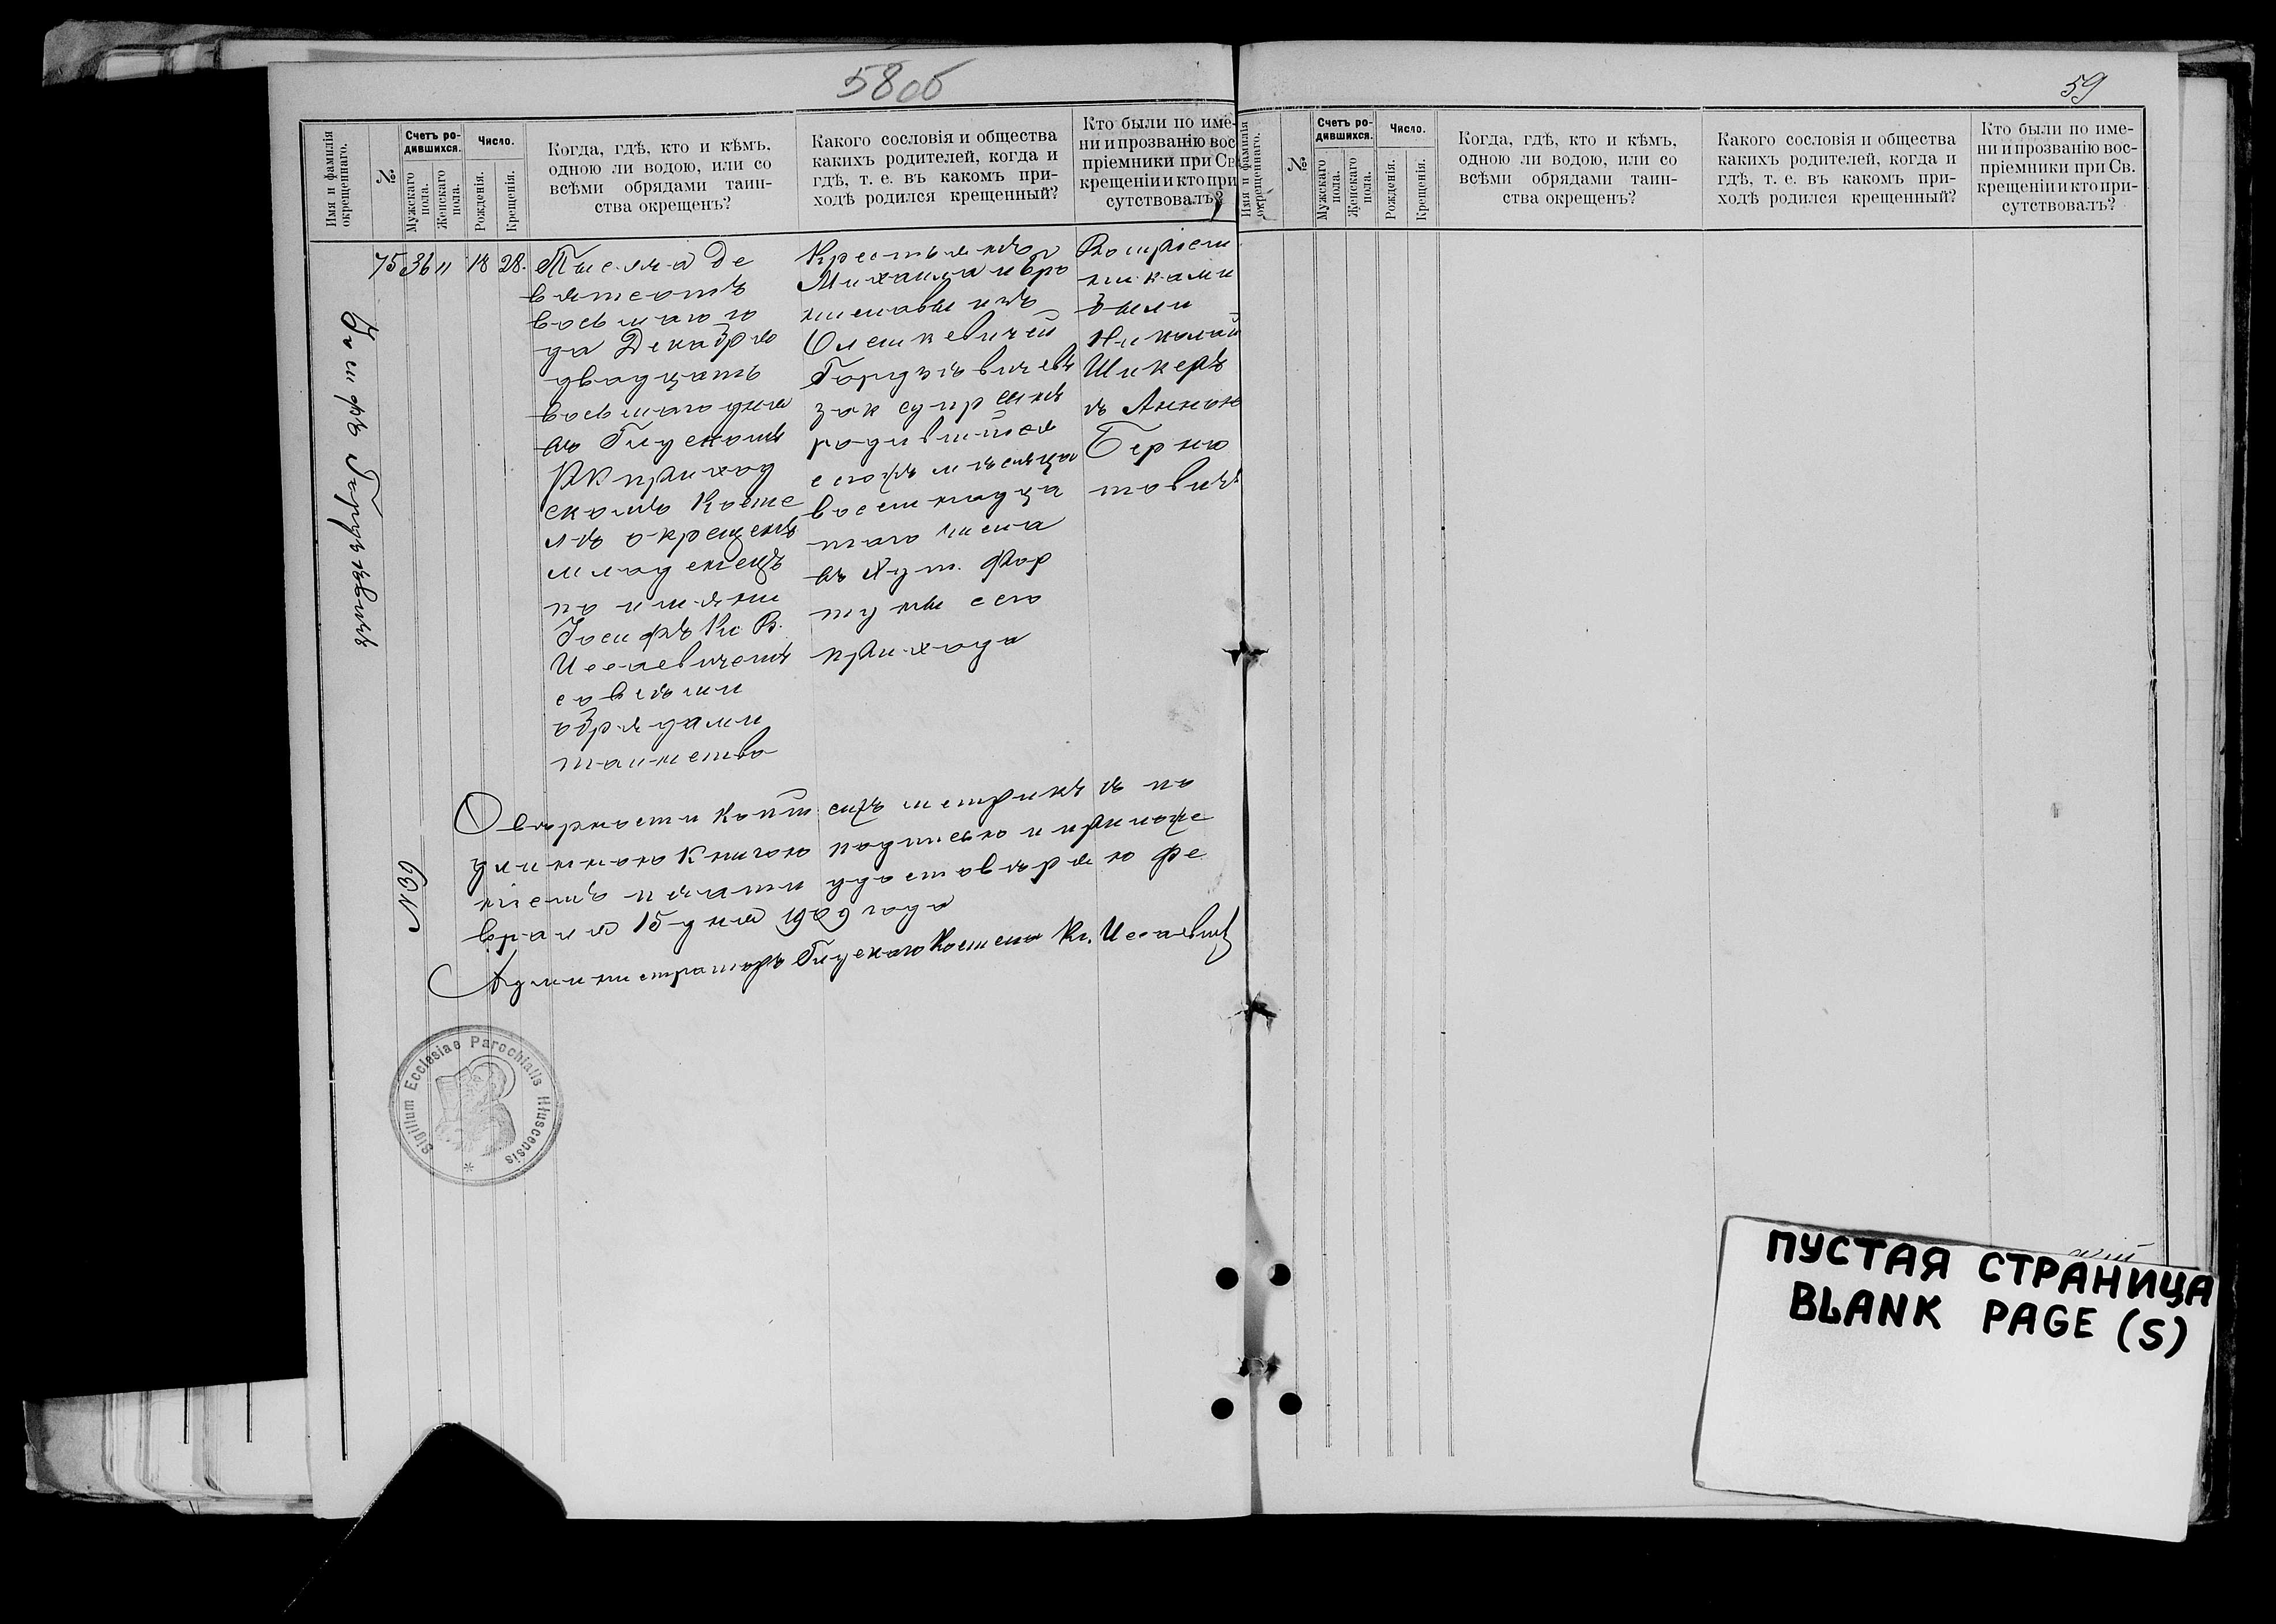 58об
Имя и фамилія окрещеннаго.
№
Счетъ ро-
дившихся.
Мужскаго пола.
Женскаго пола.
Число.
Рожденія.
Крещенія.
Когда, гдѣ, кто и кѣмъ,
одною ли водою, или со
всѣми обрядами таин-
ства окрещенъ?
Какого сословія и общества
какихъ родителей, когда и
гдѣ, т. е. въ какомъ при-
ходѣ родился крещенный?
Кто были по име-
ни и прозванію вос-
пріемники при Св
крещеніи и кто при
сутствовалъ?
75 36 " 18 28.
Іосифъ
Тысяча де
вятсотъ
восьмаго го
да Декабря
двадцать
восьмаго дня
въ Глускомъ
РК приход
скомъ Косте
лѣ окрещенъ
младенецъ
по имени
Іосифъ Кс В.
Исаевичемъ
со всѣми
обрядами
таинства
Крестьянъ
Михаила и Бро
ниславы изъ
законн супруговъ
родившійся
сего мѣсяца
восемнадца
таго числа
въ сего
прихода
Воспріем
никами
были
Николай
съ Анною
О вѣрности копіи сихъ метрикъ съ по
длинною книгою подписью и приложе
ніемъ печати удостовѣряю Фе
враля 15 дня 1909 года
Администраторъ Глускаго Костела Кс. Исаевичъ
№39
Sigillum Ecclesiae Parochialis Hluscensis
59
Имя и фамилія окрещеннаго.
№
Счетъ ро-
дившихся.
Мужскаго пола.
Женскаго пола.
Число.
Рожденія.
Крещенія.
Когда, гдѣ, кто и кѣмъ,
одною ли водою, или со
всѣми обрядами таин-
ства окрещенъ?
Какого сословія и общества
какихъ родителей, когда и
гдѣ, т. е. въ какомъ при-
ходѣ родился крещенный?
Кто были по име-
ни и прозванію вос-
пріемники при Св.
крещеніи и кто при-
сутствовалъ?
ПУСТАЯ СТРАНИЦА
BLANK PAGE (S)